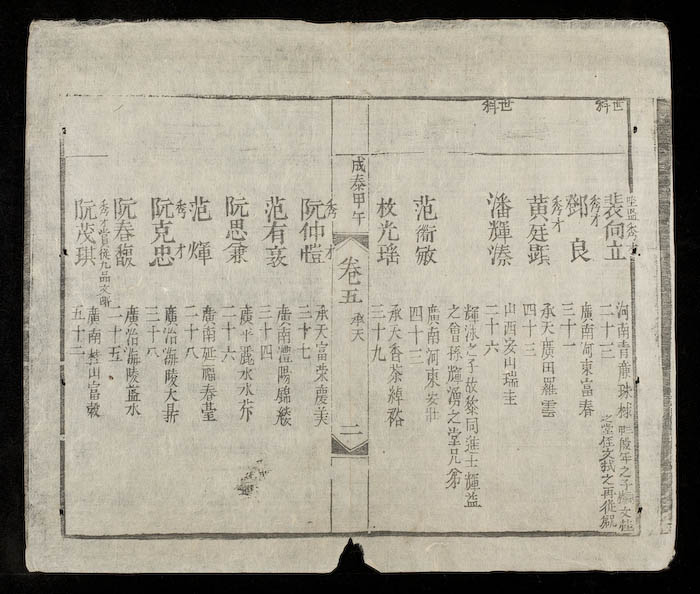 世科
世科
蔭監秀才
裴向立
河南青廉珠樑
二十三
秀才
鄧良
廣南河東富春
三十一
秀才
黃廷顕
承天廣田羅雲
四十三
潘輝溱
山西安山瑞圭
二十六
輝泳之子故黎同進士輝益
之曾孫輝湧之堂兄弟
范衛敏
廣南河東安壯
四十三
枚光瑶
承天香茶綽裕
三十九
成泰甲午
卷五
承天
二
秀才
阮仲愷
承天富荣慶美
三十七
范有裒
廣南澧陽錦緩
三十四
阮思兼
廣平麗水水芹
二十六
范煇
廣南延福春臺
二十八
秀才
阮克忠
廣治海陵大鼎
三十八
阮春馥
廣治海陵藍水
二十五
秀才賞從九品文階
阮茂琪
廣南桂山富穀
五十二